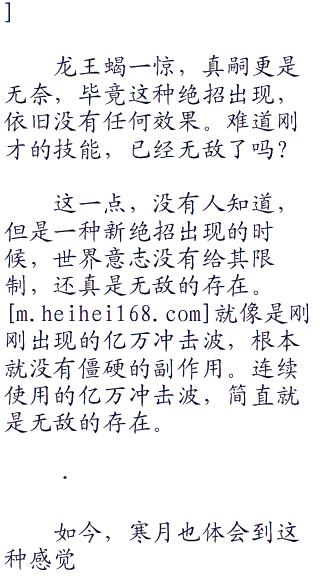 ]
龙王蝎一惊，真嗣更是
无奈，毕竟这种绝招出现，
依旧没有任何效果。难道刚
才的技能，已经无敌了吗？
这一点，没有人知道，
但是一种新绝招出现的时
候，世界意志没有给其限
制，还真是无敌的存在。
[m.heihei168.com]就像是刚
刚出现的亿万冲击波，根本
就没有僵硬的副作用。连续
使用的亿万冲击波，简直就
是无敌的存在。
.
如今，寒月也体会到这
种感觉